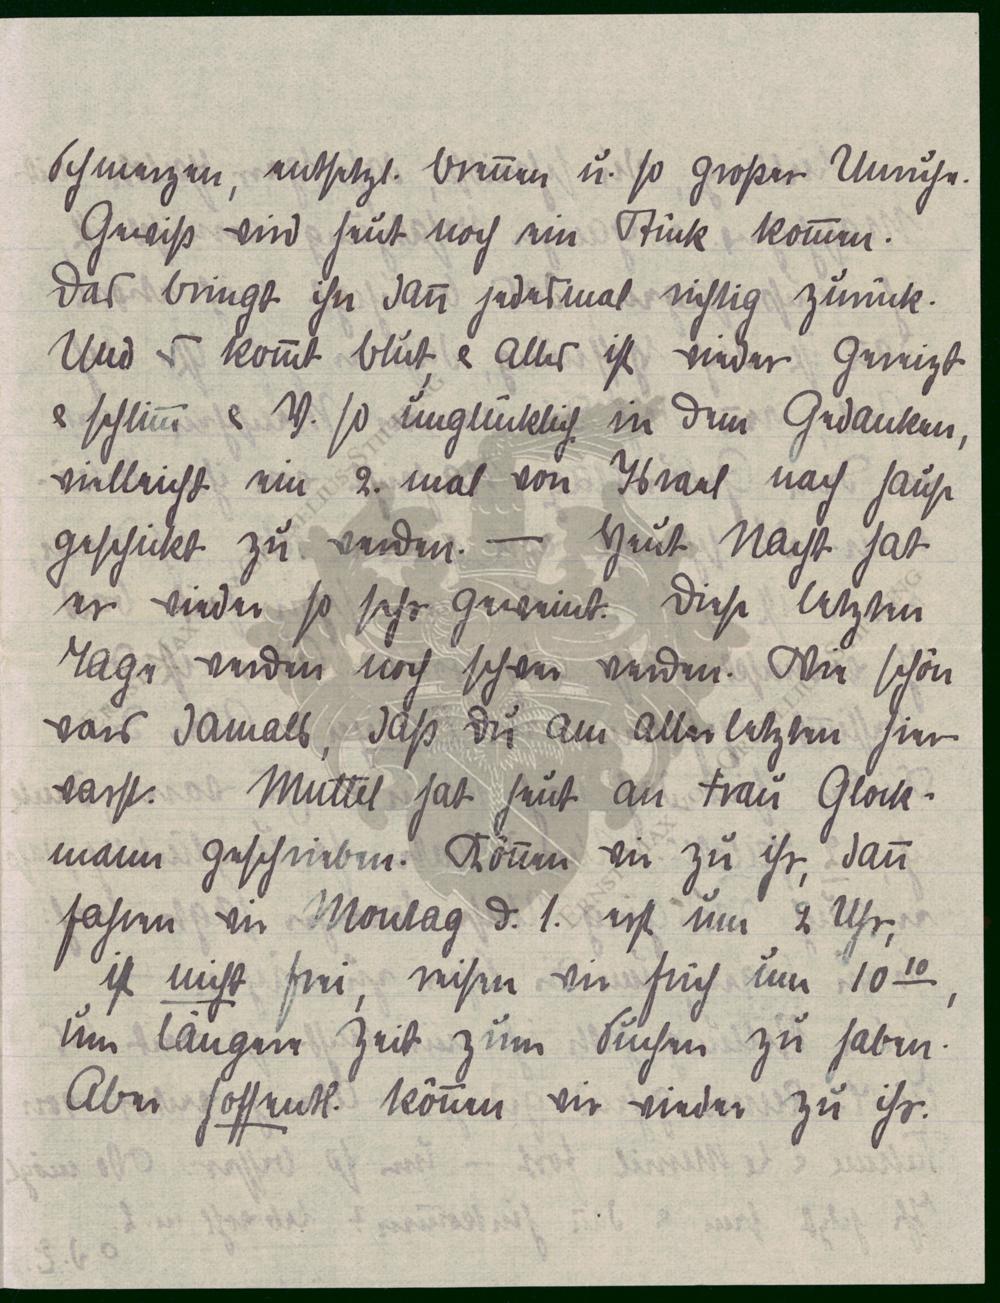 Schmerzen, entsetzl. breñen u. so großer Unruhe.
Gewiß wird heut noch ein Stück kom̄en.
Das bringt ihn dañ jedesmal richtig zurück.
Und es kom̄t blut, & alles ist wieder gereizt
& schlim̄ & V. so unglücklich in dem Gedanken,
vielleicht ein 2. mal von Israel nach hause
geschickt zu werden. — Heut Nacht hat
er wieder so sehr geweint. Diese letzten
Tage werden noch schwer werden. Wie schön
wars damals, daß du am allerletzten hier
warst. Muttel hat heut an Frau Glock-
mann geschrieben. Köñen wir zu ihr, dañ
fahren wir Montag d. 1. erst um 2 Uhr,
ist nicht frei, reisen wir früh um 10 10,
um längere Zeit zum Suchen zu haben.
Aber hoffentl. köñen wir wieder zu ihr.